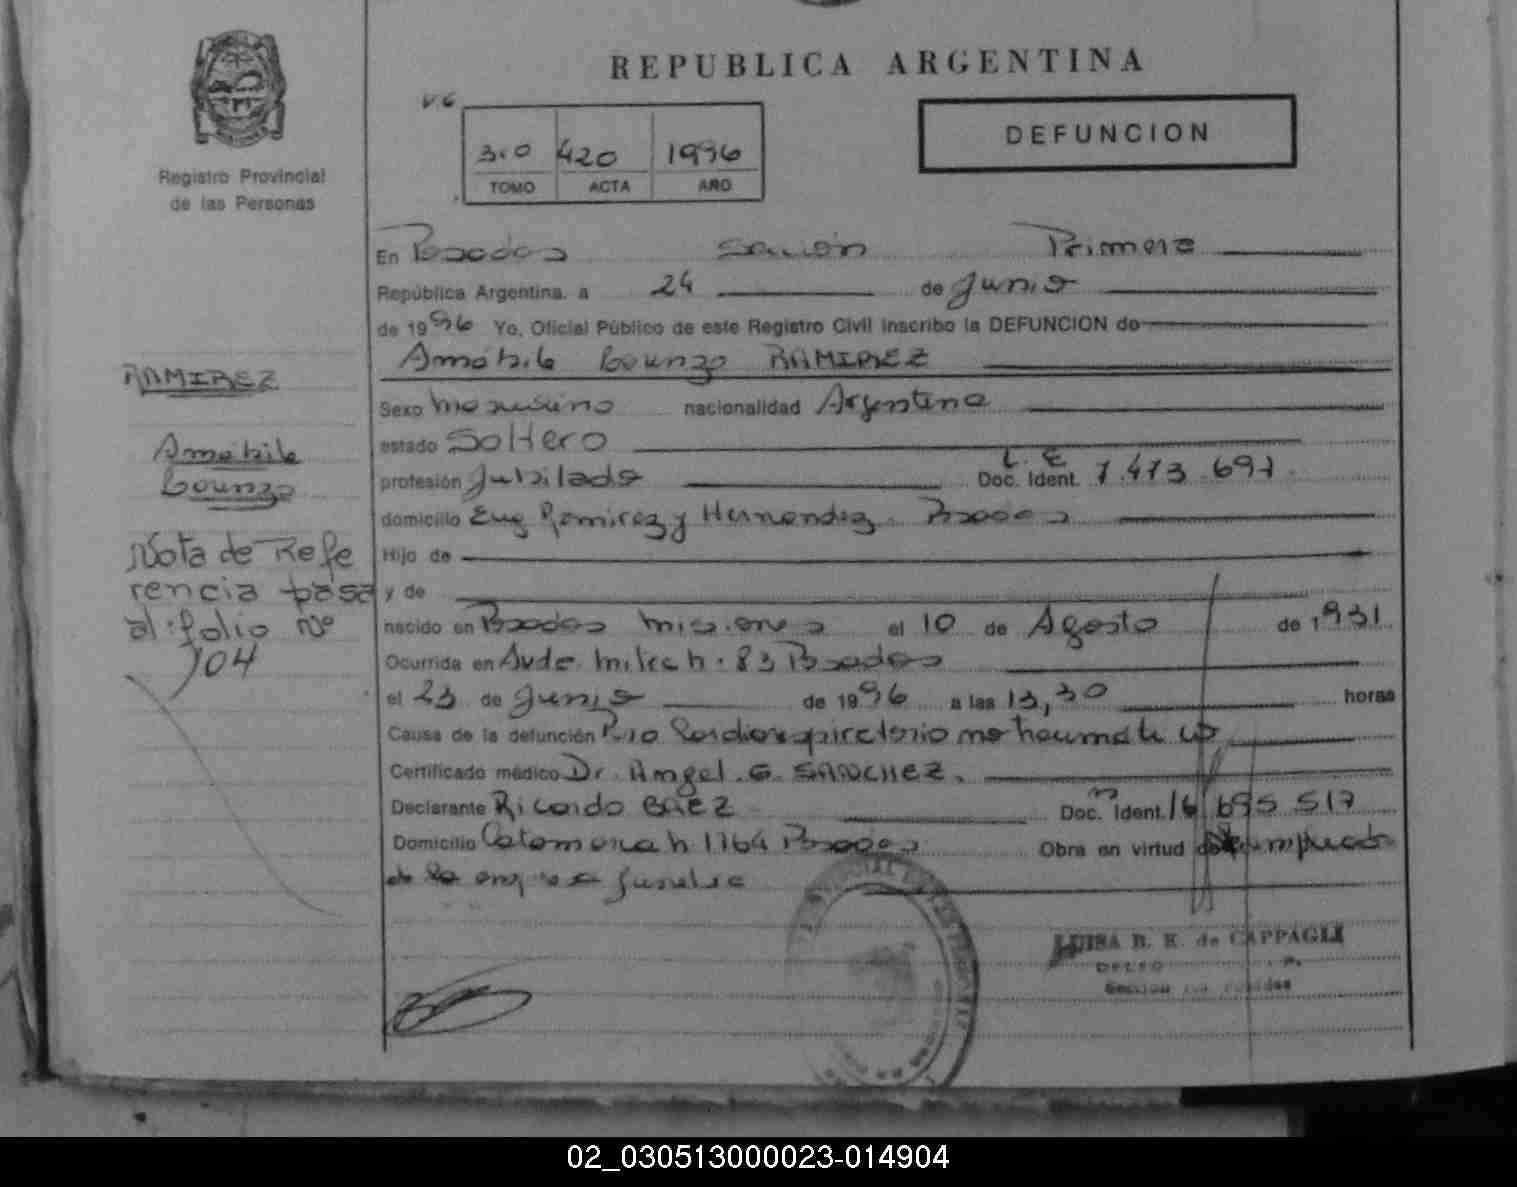 REPUBLICA ARGENTINA
DEFUNCION
3.0 420 1996
TOMO ACTA AÑO
Registro Provincial
de las Personas
En Posadas Sección Primera
República Argentina, a 24 de Junio
de 1996 Yo, Oficial Público de este Registro Civil inscribo la DEFUNCION de
RAMIREZ
Sexo masculino nacionalidad Argentina
estado Soltero
profesión Jubilado Doc. Ident. L. E 7.473.697
domicilio Eug Ramirez y Hernandez. Posadas
Hijo de
y de
nacido en Posadas Misiones el 10 de Agosto de 1931
Ocurrida en Avda. Mitre 83 Posadas
el 23 de Junio de 1996 a las 13,30 horas
Causa de la defunción Paro Cardiorespiratorio no traumatico
Certificado médico Dr. Angel. G. SANCHEZ.
Declarante Ricardo BAEZ Doc. Ident. 16 695 517
Domicilio Catamarca 1764 Posadas Obra en virtud de empleado
de la empresa funebre
RAMIREZ
Nota de Refe
rencia pasa
al folio Nº
104
LUISA B. K. de CAPPAGLI
02_030513000023-014904